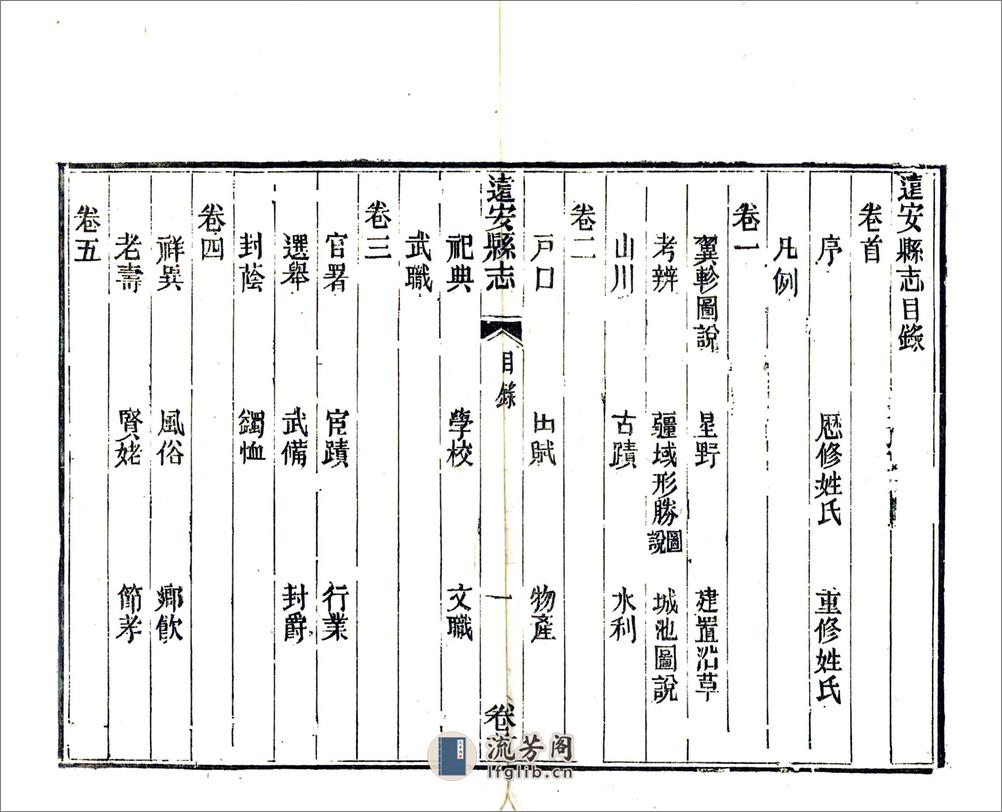 遠安縣志目錄
卷首
序 歷修姓氏 重修姓氏
凡例
卷一
翼軫圖說 星野 建置沿革
考辨 疆域形勝圖說 城池圖說
山川 古蹟 水利
卷二
戶口 田賦 物產
遠安縣志 目錄 一 卷首
祀典 學校 文職
武職
卷三
官署 宦蹟 行業
選舉 武備 封爵
封蔭 蠲恤
卷四
祥異 風俗 鄉飲
老壽 賢姥 節孝
卷五
流芳阁
lfglib.cn